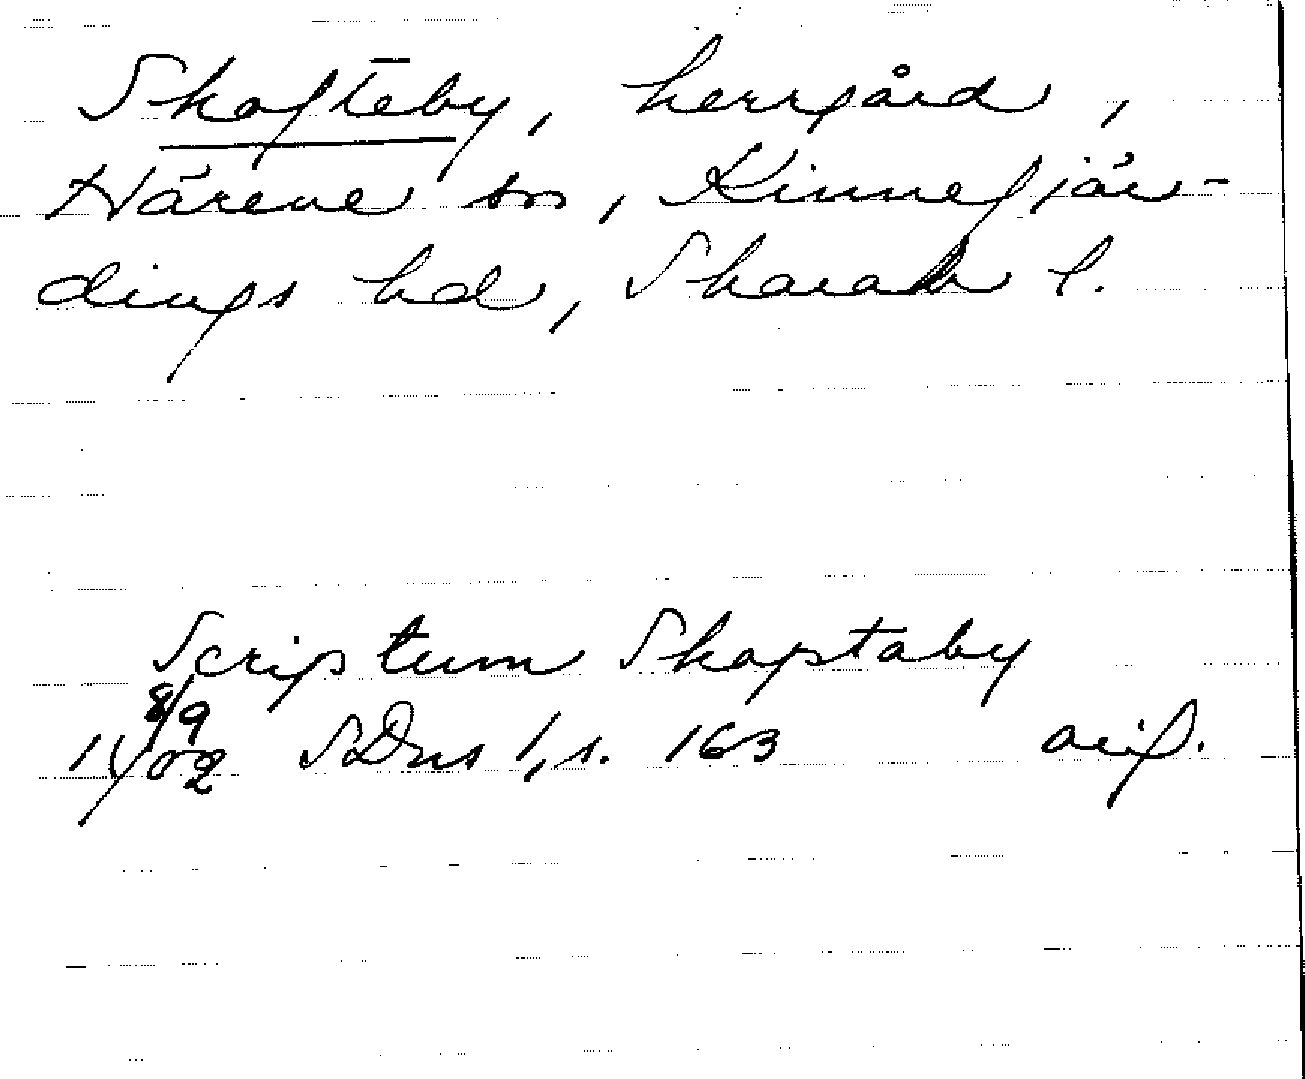 Skofteby, herrgård,
Härene sn, Kinnefjär-
dings hd, Skarab l.
Scriptum Skoptaby
8/9
1402 SDns 1, s. 163 avif.